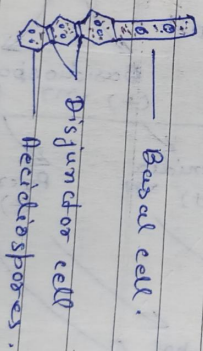 Basal cell.
Disjunctor cell
Aecidiospores.